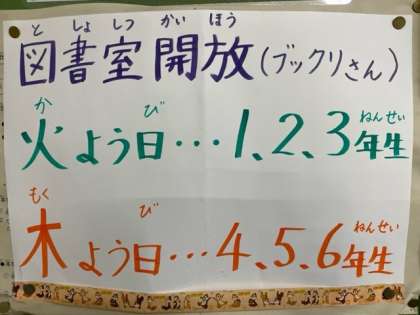 としょしつかいほう
図書室開放(ブックリさん)
かび
火よう日…1、2、3年生
ねんせい
もくび
木よう日…4、5、6年生
ねんせい